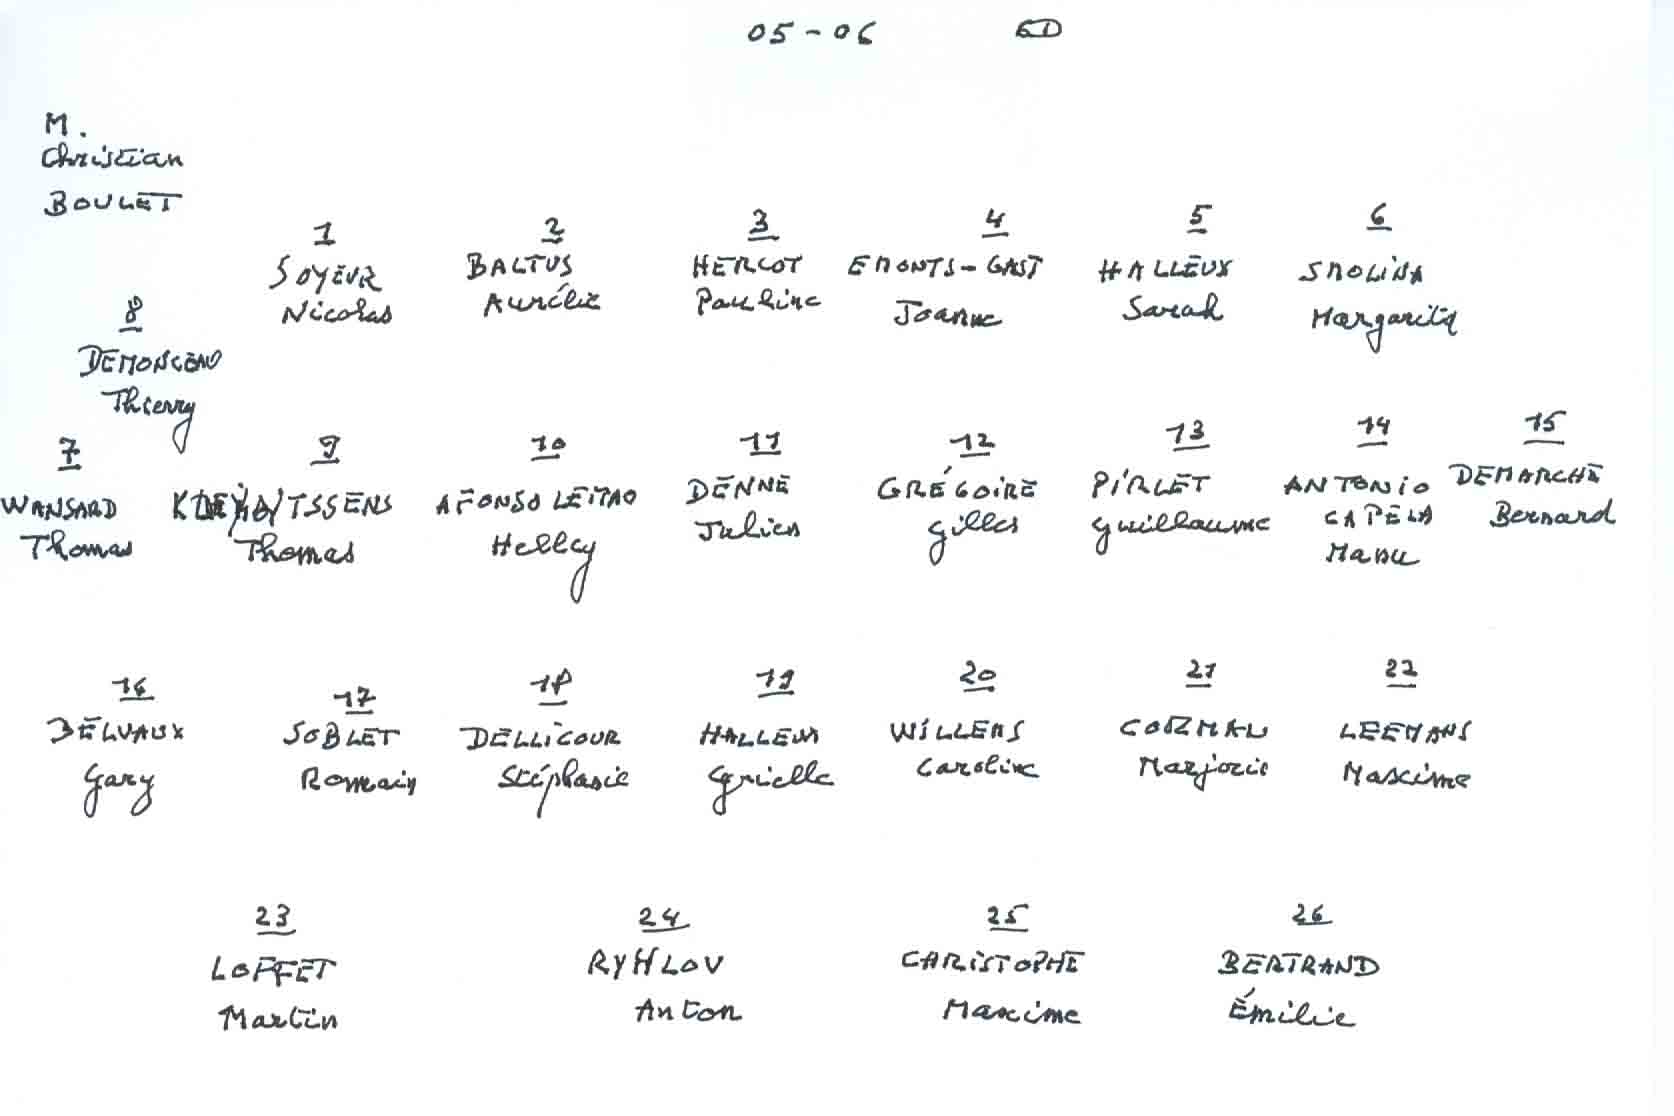 05-06 6D
M.
Christian
BOULET
1 2 3 4 5 6
SOYEUR BALTUS HERCOT EMONTS-GAST HALLEUX SMOLINA
Nicolas Aurélie Pauline Joanne Sarah Margarita
8
DEMONCEAU
Thierry
7 9 10 11 12 13 14 15
WANSARD AFONSO LEITAO DENNE GRÉGOIRE PIRLET ANTONIO DEMARCHE
CAPELA
Thomas Thomas Helley Julien Gilles Guillaume Manu Bernard
16 17 18 19 20 21 22
DELVAUX SOBLET DELLICOUR HALLEUX WILLEMS LEEMANS
Gary Romain Stéphanie Cyrielle Caroline Marjorie Maxime
23 24 25 26
LOFFET RYHLOV CHRISTOPHE BERTRAND
Martin Anton Maxime Émilie